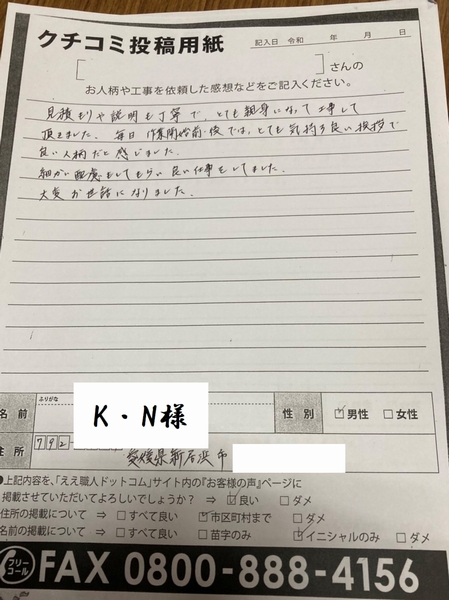 クチコミ投稿用紙
記入日 令和 年 月 日
[ ]さんの
お人柄や工事を依頼した感想などをご記入ください。
見積もりや説明も丁寧で、とても親身になって工事して
頂きました。毎日作業開始前・後では、とても気持ち良い挨拶で
良い人柄だと感じました。
細かい配慮もしてもらい良い仕事をしてました。
大変お世話になりました。
ふりがな
名前 K・N様 性別 ☑男性 □女性
住所 792-
愛媛県新居浜市
●上記内容を、「ええ職人ドットコム」サイト内の『お客様の声』ページに
掲載させていただいてよろしいでしょうか? ⇒ ☑良い □ダメ
住所の掲載について ⇒ □すべて良い ☑市区町村まで □ダメ
名前の掲載について ⇒ □すべて良い □苗字のみ ☑イニシャルのみ □ダメ
フリーコール FAX 0800-888-4156